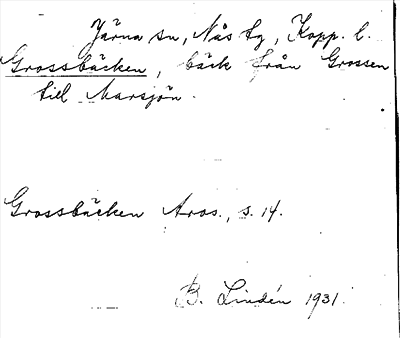 Järna sn, Nås tg, Kopp. l.
Grossbäcken, bäck från Grossen
till Marsjön.
Grossbäcken Aros., s. 14.
B. Lindén 1931.